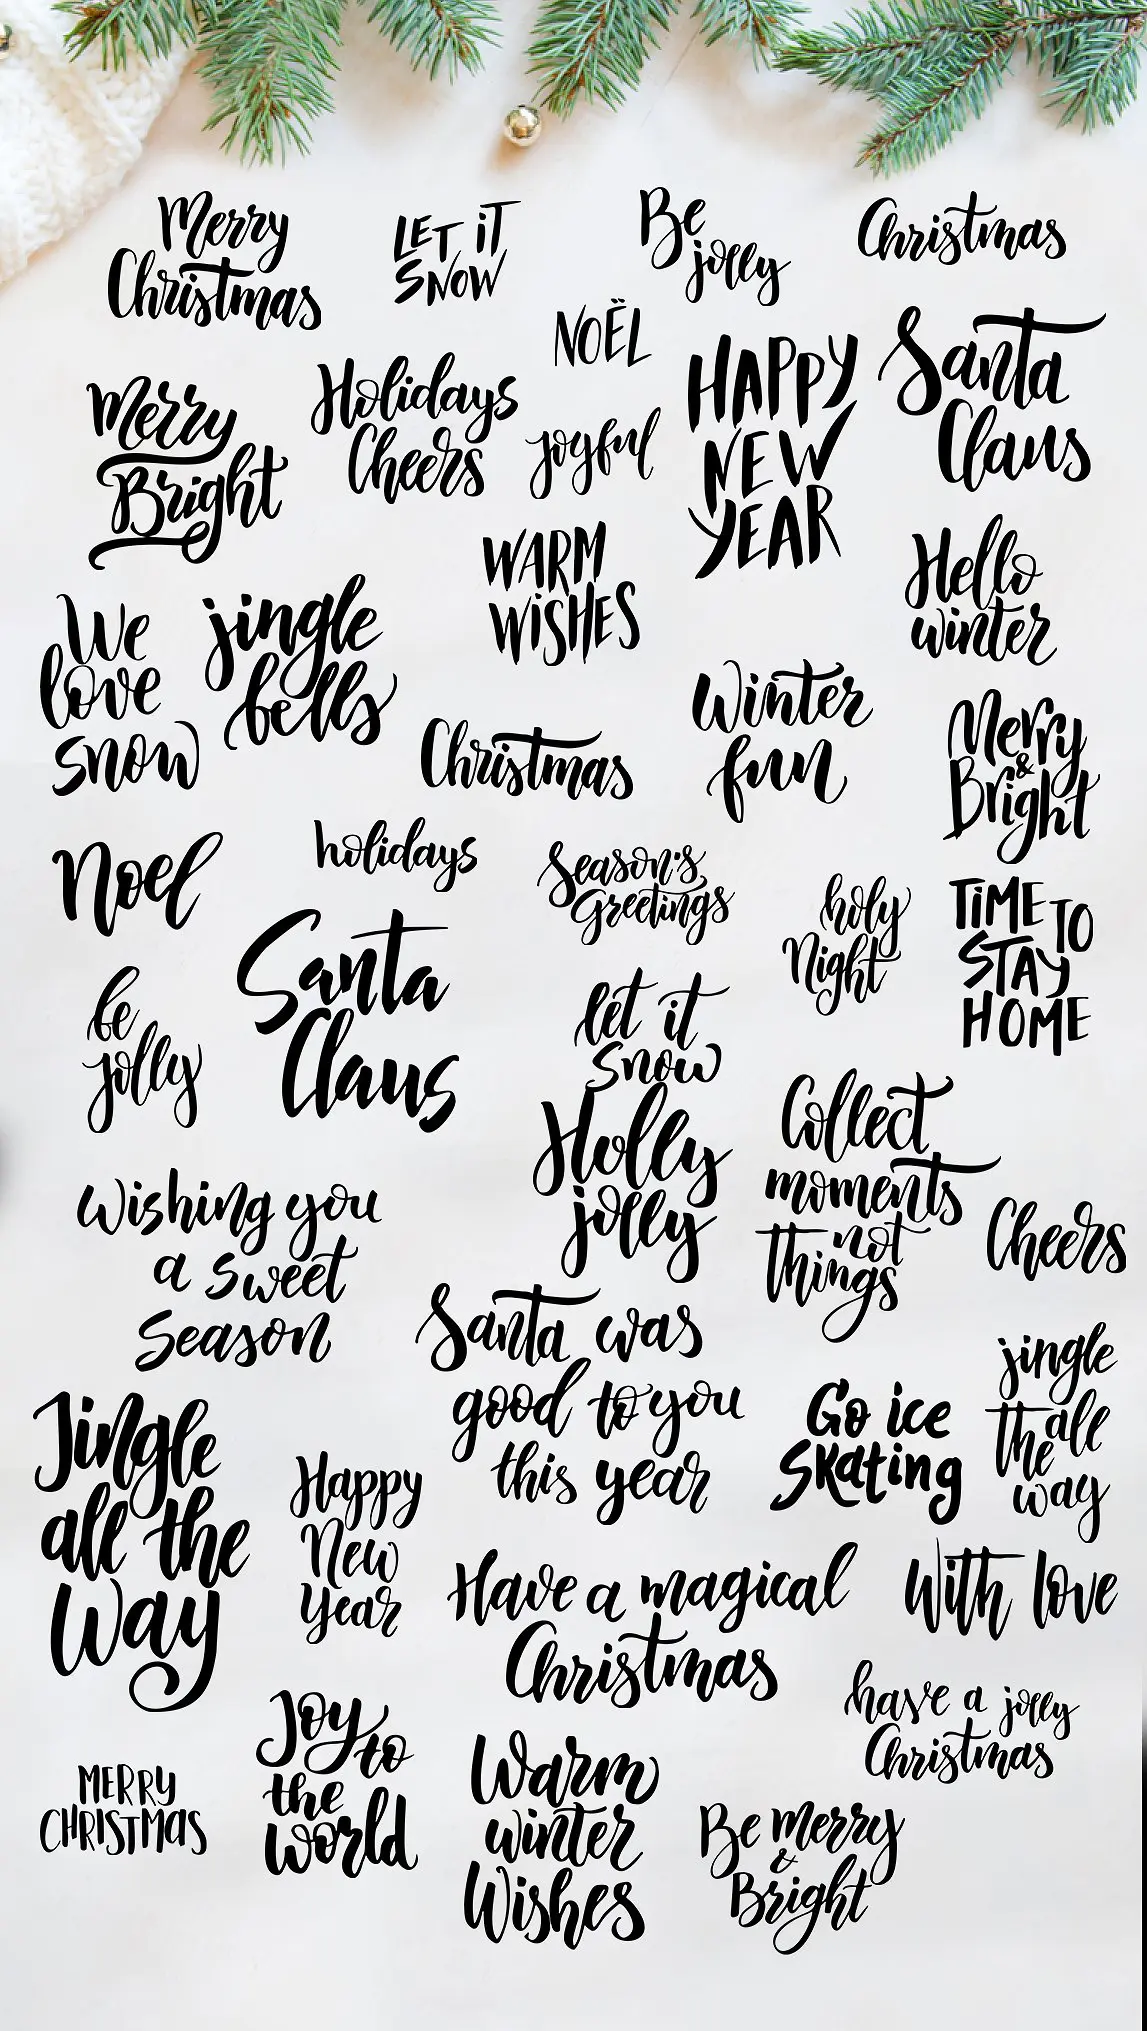 Merry
Christmas
LET iT
SNOW
Be
jolly
Christmas
NOËL
HAPPY
NEW
YEAR
Santa
Claus
Merry
Bright
Holidays
Cheers
joyful
WARM
WiSHES
Hello
winter
We
love
snow
jingle
bells
Christmas
Winter
fun
Merry
&
Bright
Noel
holidays
Season's
Greetings
holy
Night
TiME TO
STAY
HOME
Santa
Claus
be
jolly
let it
snow
Holly
jolly
Collect
moments
not
things
Cheers
Wishing you
a sweet
Season
Santa was
good to you
this year
Go ice
Skating
jingle
all
the
way
Jingle
all the
Way
Happy
New
Year
Have a magical
Christmas
With love
have a jolly
Christmas
Joy to
the
world
MERRY
CHRISTMAS
Warm
winter
Wishes
Be merry
&
Bright